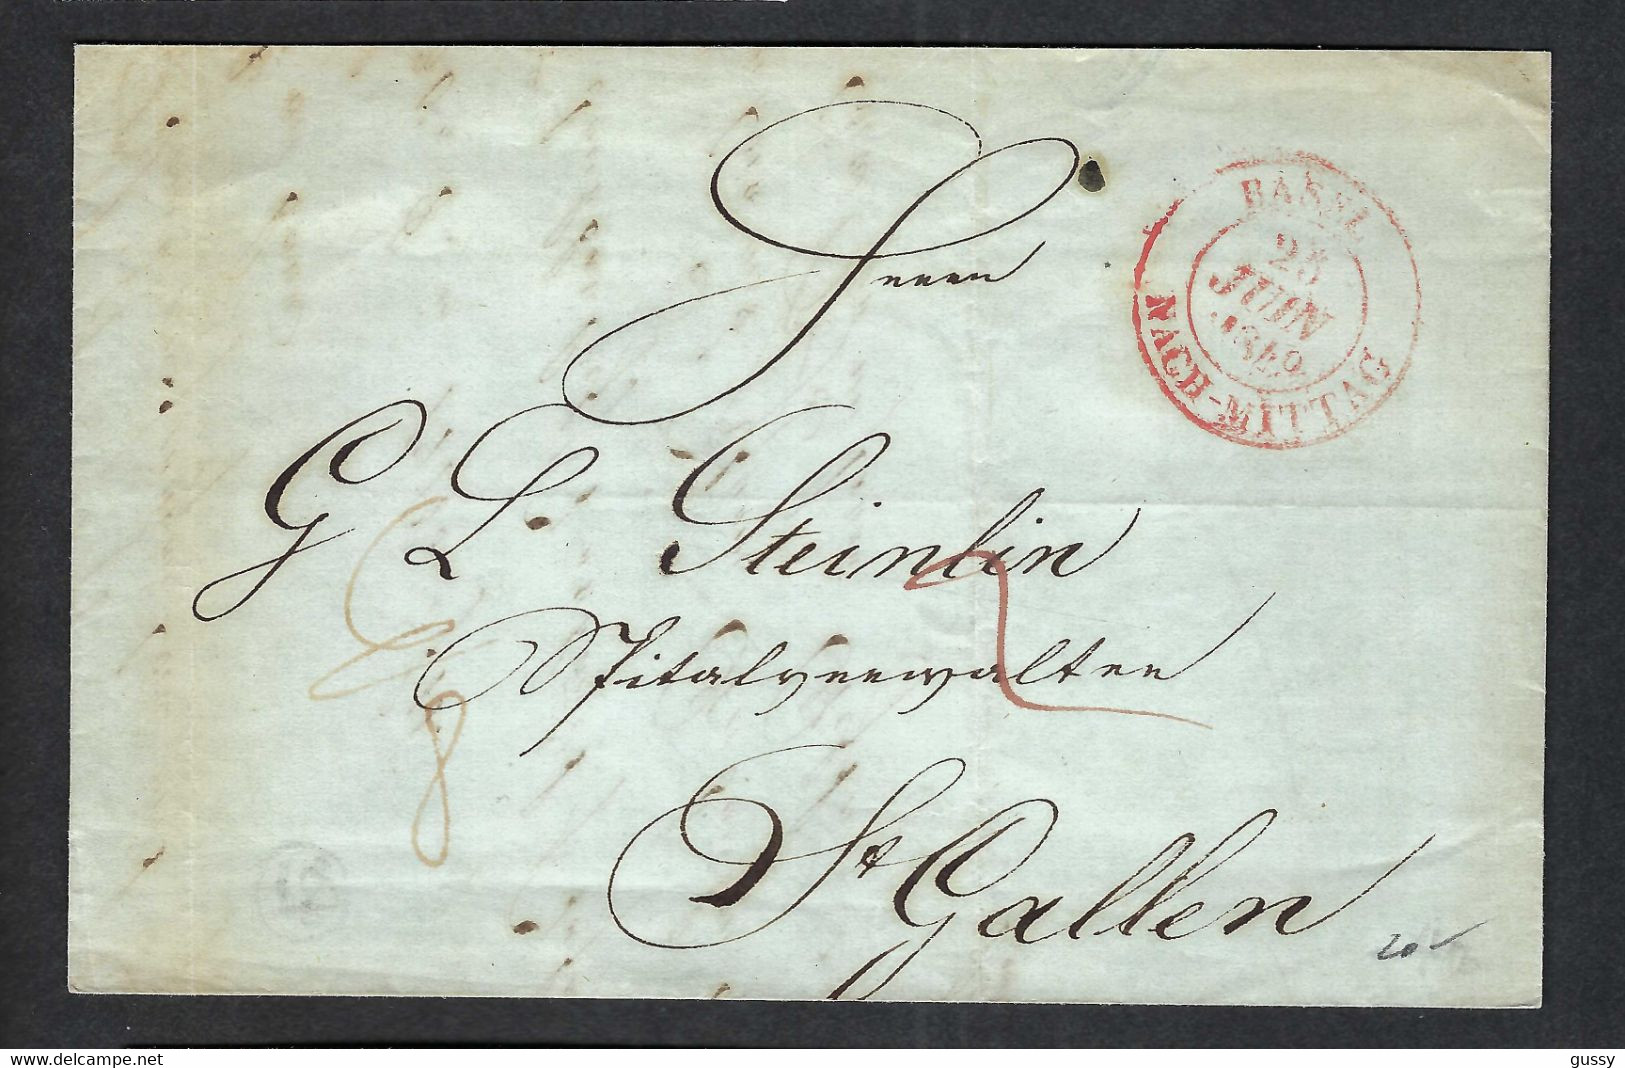 Herrn
G L. Steinlin
Spitalverwalter
St Gallen
BASEL
25
JUIN
1849
NACH-MITTAG
8
20-
www.delcampe.net
gussy